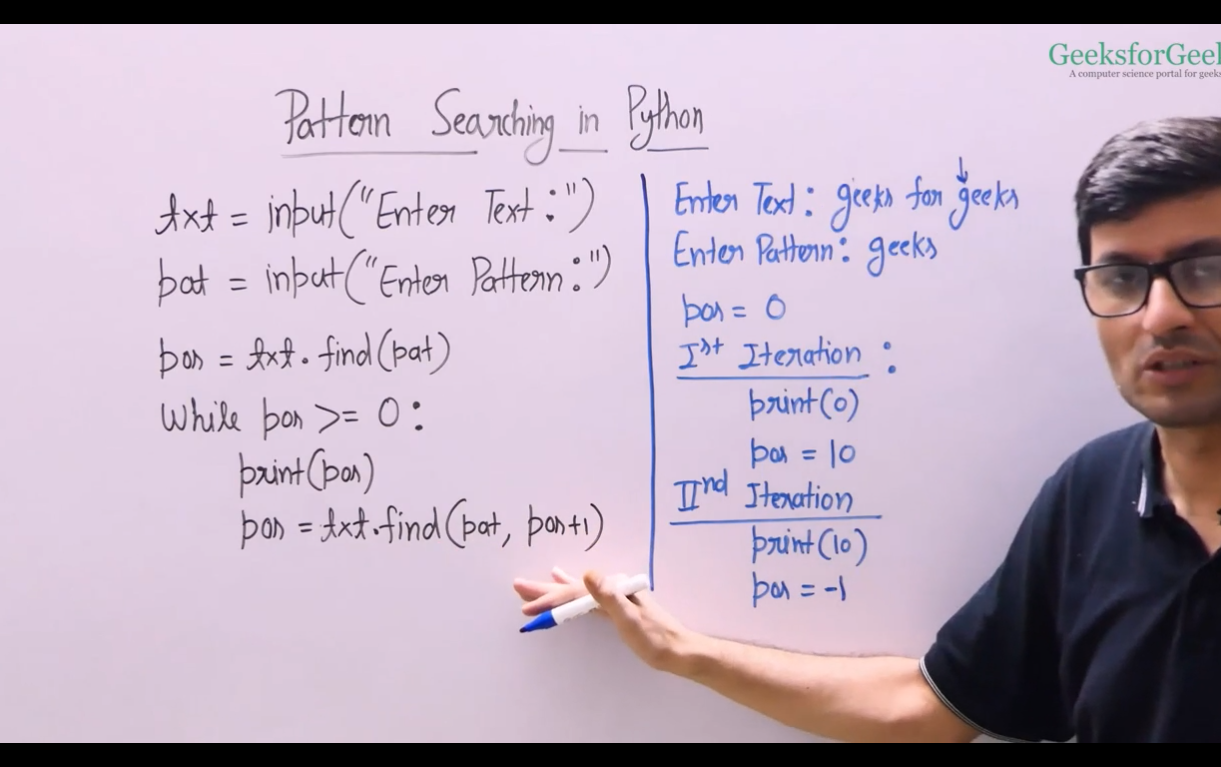 GeeksforGeek
A computer science portal for geeks
Pattern Searching in Python
txt = input("Enter Text:")
pat = input("Enter Pattern:")
pos = txt.find(pat)
While pos >= 0:
print(pos)
pos = txt.find(pat, pos+1)
Enter Text: geeks for geeks
Enter Pattern: geeks
pos = 0
Ist Iteration :
print(0)
pos = 10
IInd Iteration
print(10)
pos = -1